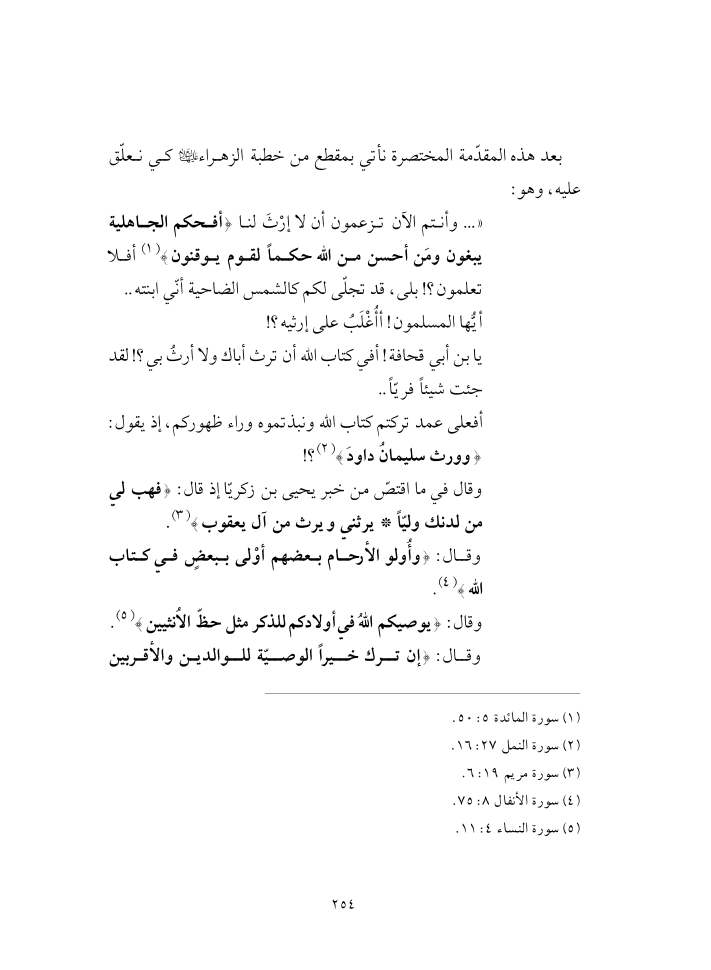 بعد هذه المقدّمة المختصرة نأتي بمقطع من خطبة الزهراء عليها السلام كي نعلّق
عليه، وهو:
«... وأنتم الآن تزعمون أن لا إرْثَ لنا ﴿أفحكم الجاهلية
يبغون ومَن أحسن من الله حكماً لقوم يوقنون﴾(١) أفلا
تعلمون؟! بلى، قد تجلّى لكم كالشمس الضاحية أنّي ابنته..
أيُّها المسلمون! أأُغْلَبُ على إرثيه؟!
يا بن أبي قحافة! أفي كتاب الله أن ترث أباك ولا أرثُ بي؟! لقد
جئت شيئاً فريّاً..
أفعلى عمد تركتم كتاب الله ونبذتموه وراء ظهوركم، إذ يقول:
﴿وورث سليمانُ داودَ﴾(٢)؟!
وقال في ما اقتصّ من خبر يحيى بن زكريّا إذ قال: ﴿فهب لي
من لدنك وليّاً * يرثني ويرث من آل يعقوب﴾(٣).
وقال: ﴿وأُولو الأرحام بعضهم أوْلى ببعضٍ في كتاب
الله﴾(٤).
وقال: ﴿يوصيكم اللهُ في أولادكم للذكر مثل حظّ الأُنثيين﴾(٥).
وقال: ﴿إن ترك خيراً الوصيّة للوالدين والأقربين
(١) سورة المائدة ٥: ٥٠.
(٢) سورة النمل ٢٧: ١٦.
(٣) سورة مريم ١٩: ٦.
(٤) سورة الأنفال ٨: ٧٥.
(٥) سورة النساء ٤: ١١.
٢٥٤